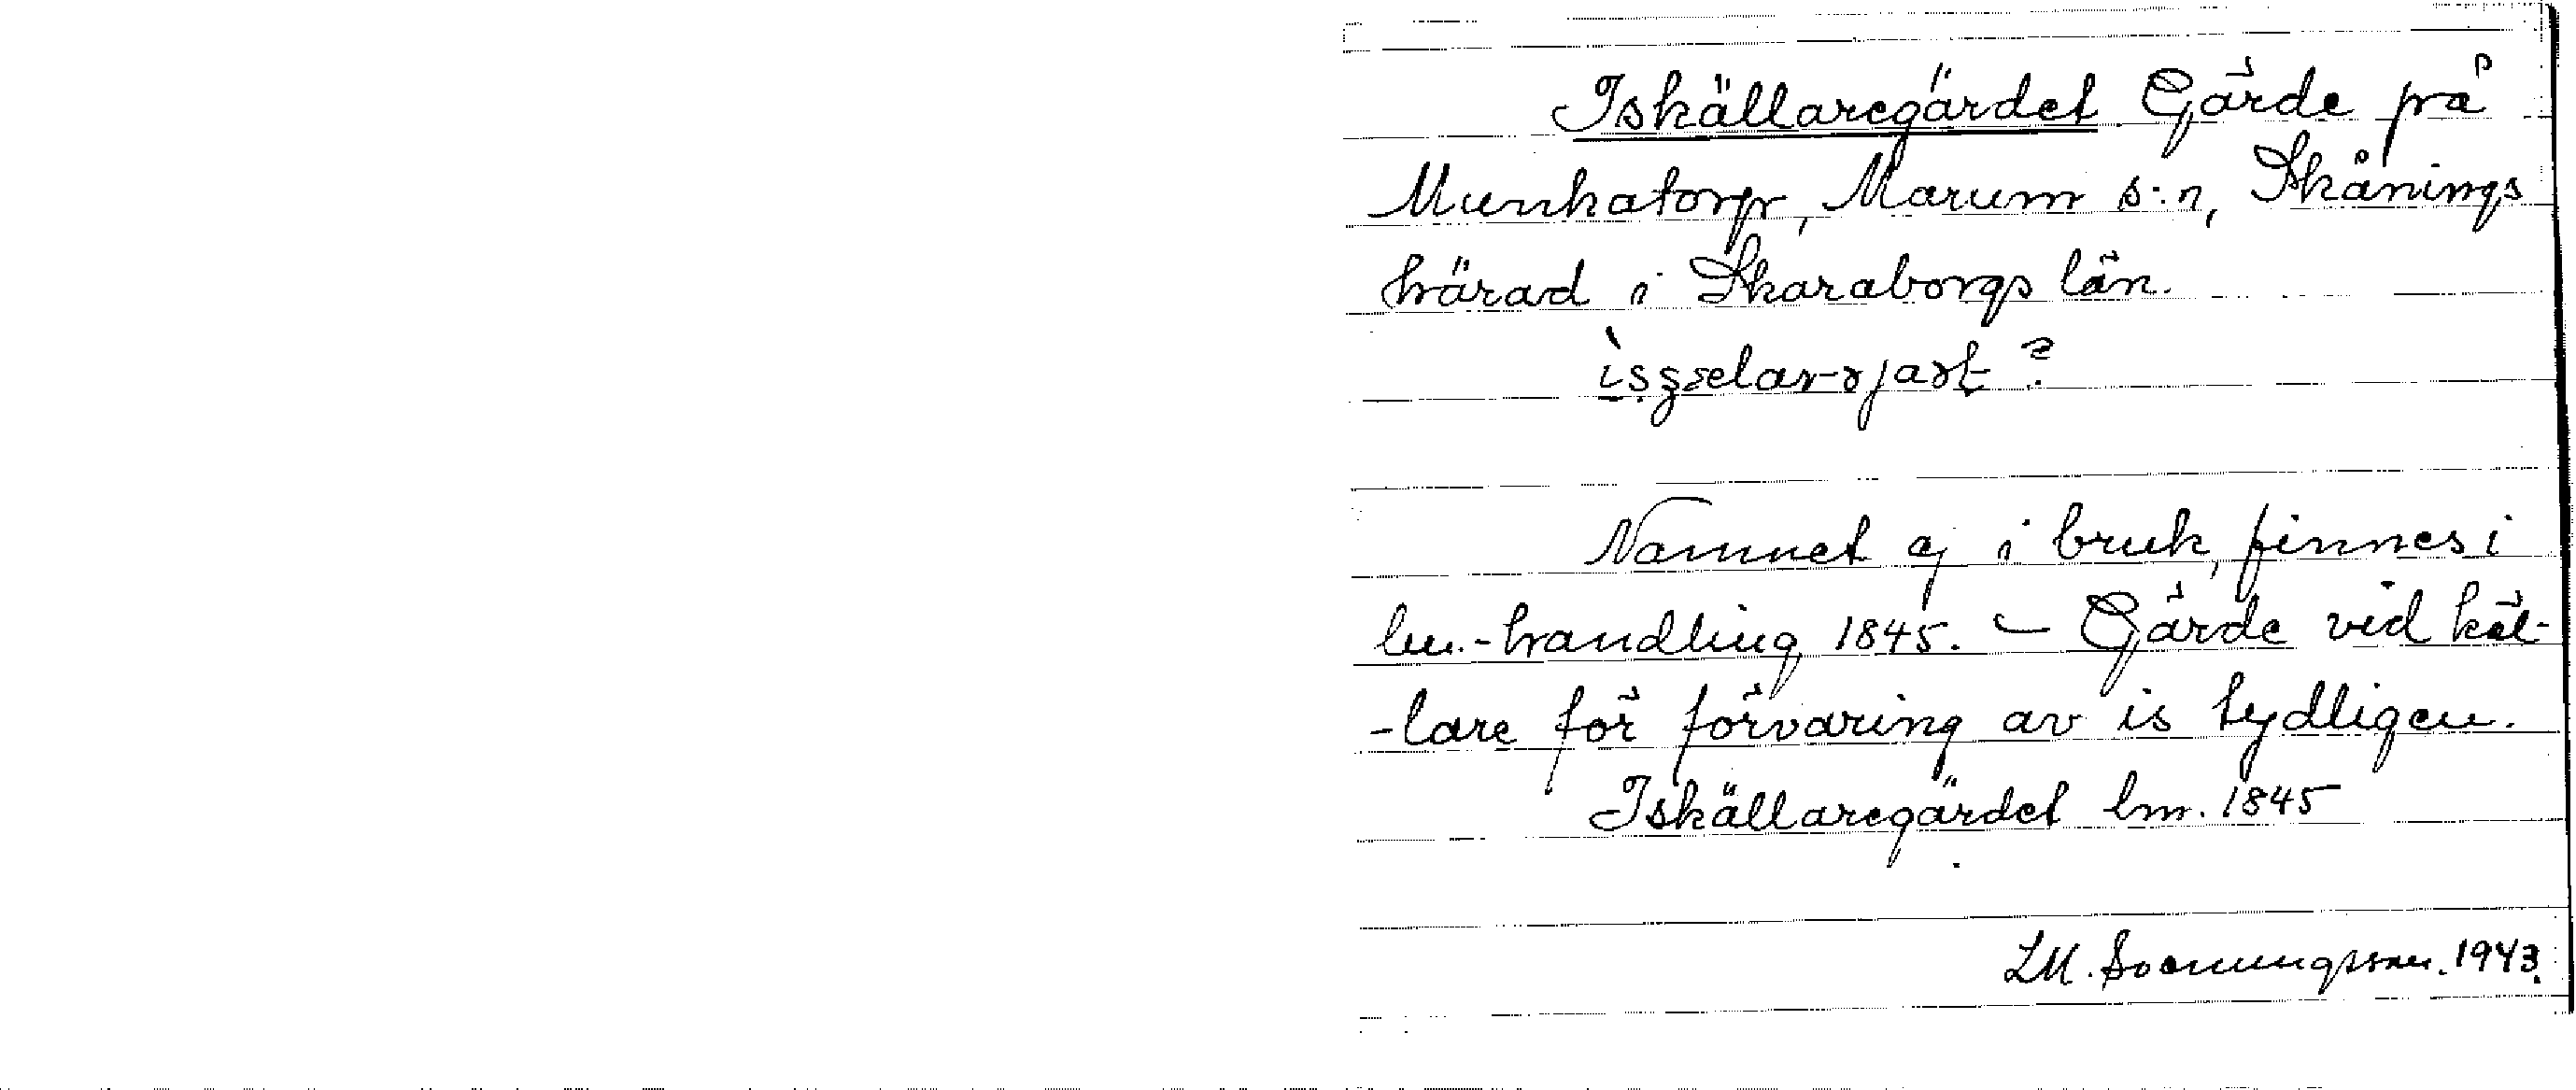 Iskällaregärdet Gärde på
Munkatorp, Marum s:n, Skånings
härad i Skaraborgs län.
Namnet ej i bruk, finnes i
lm.-handling 1845. – Gärde vid käl-
-lare för förvaring av is tydligen.
Iskällaregärdet lm. 1845
1943.